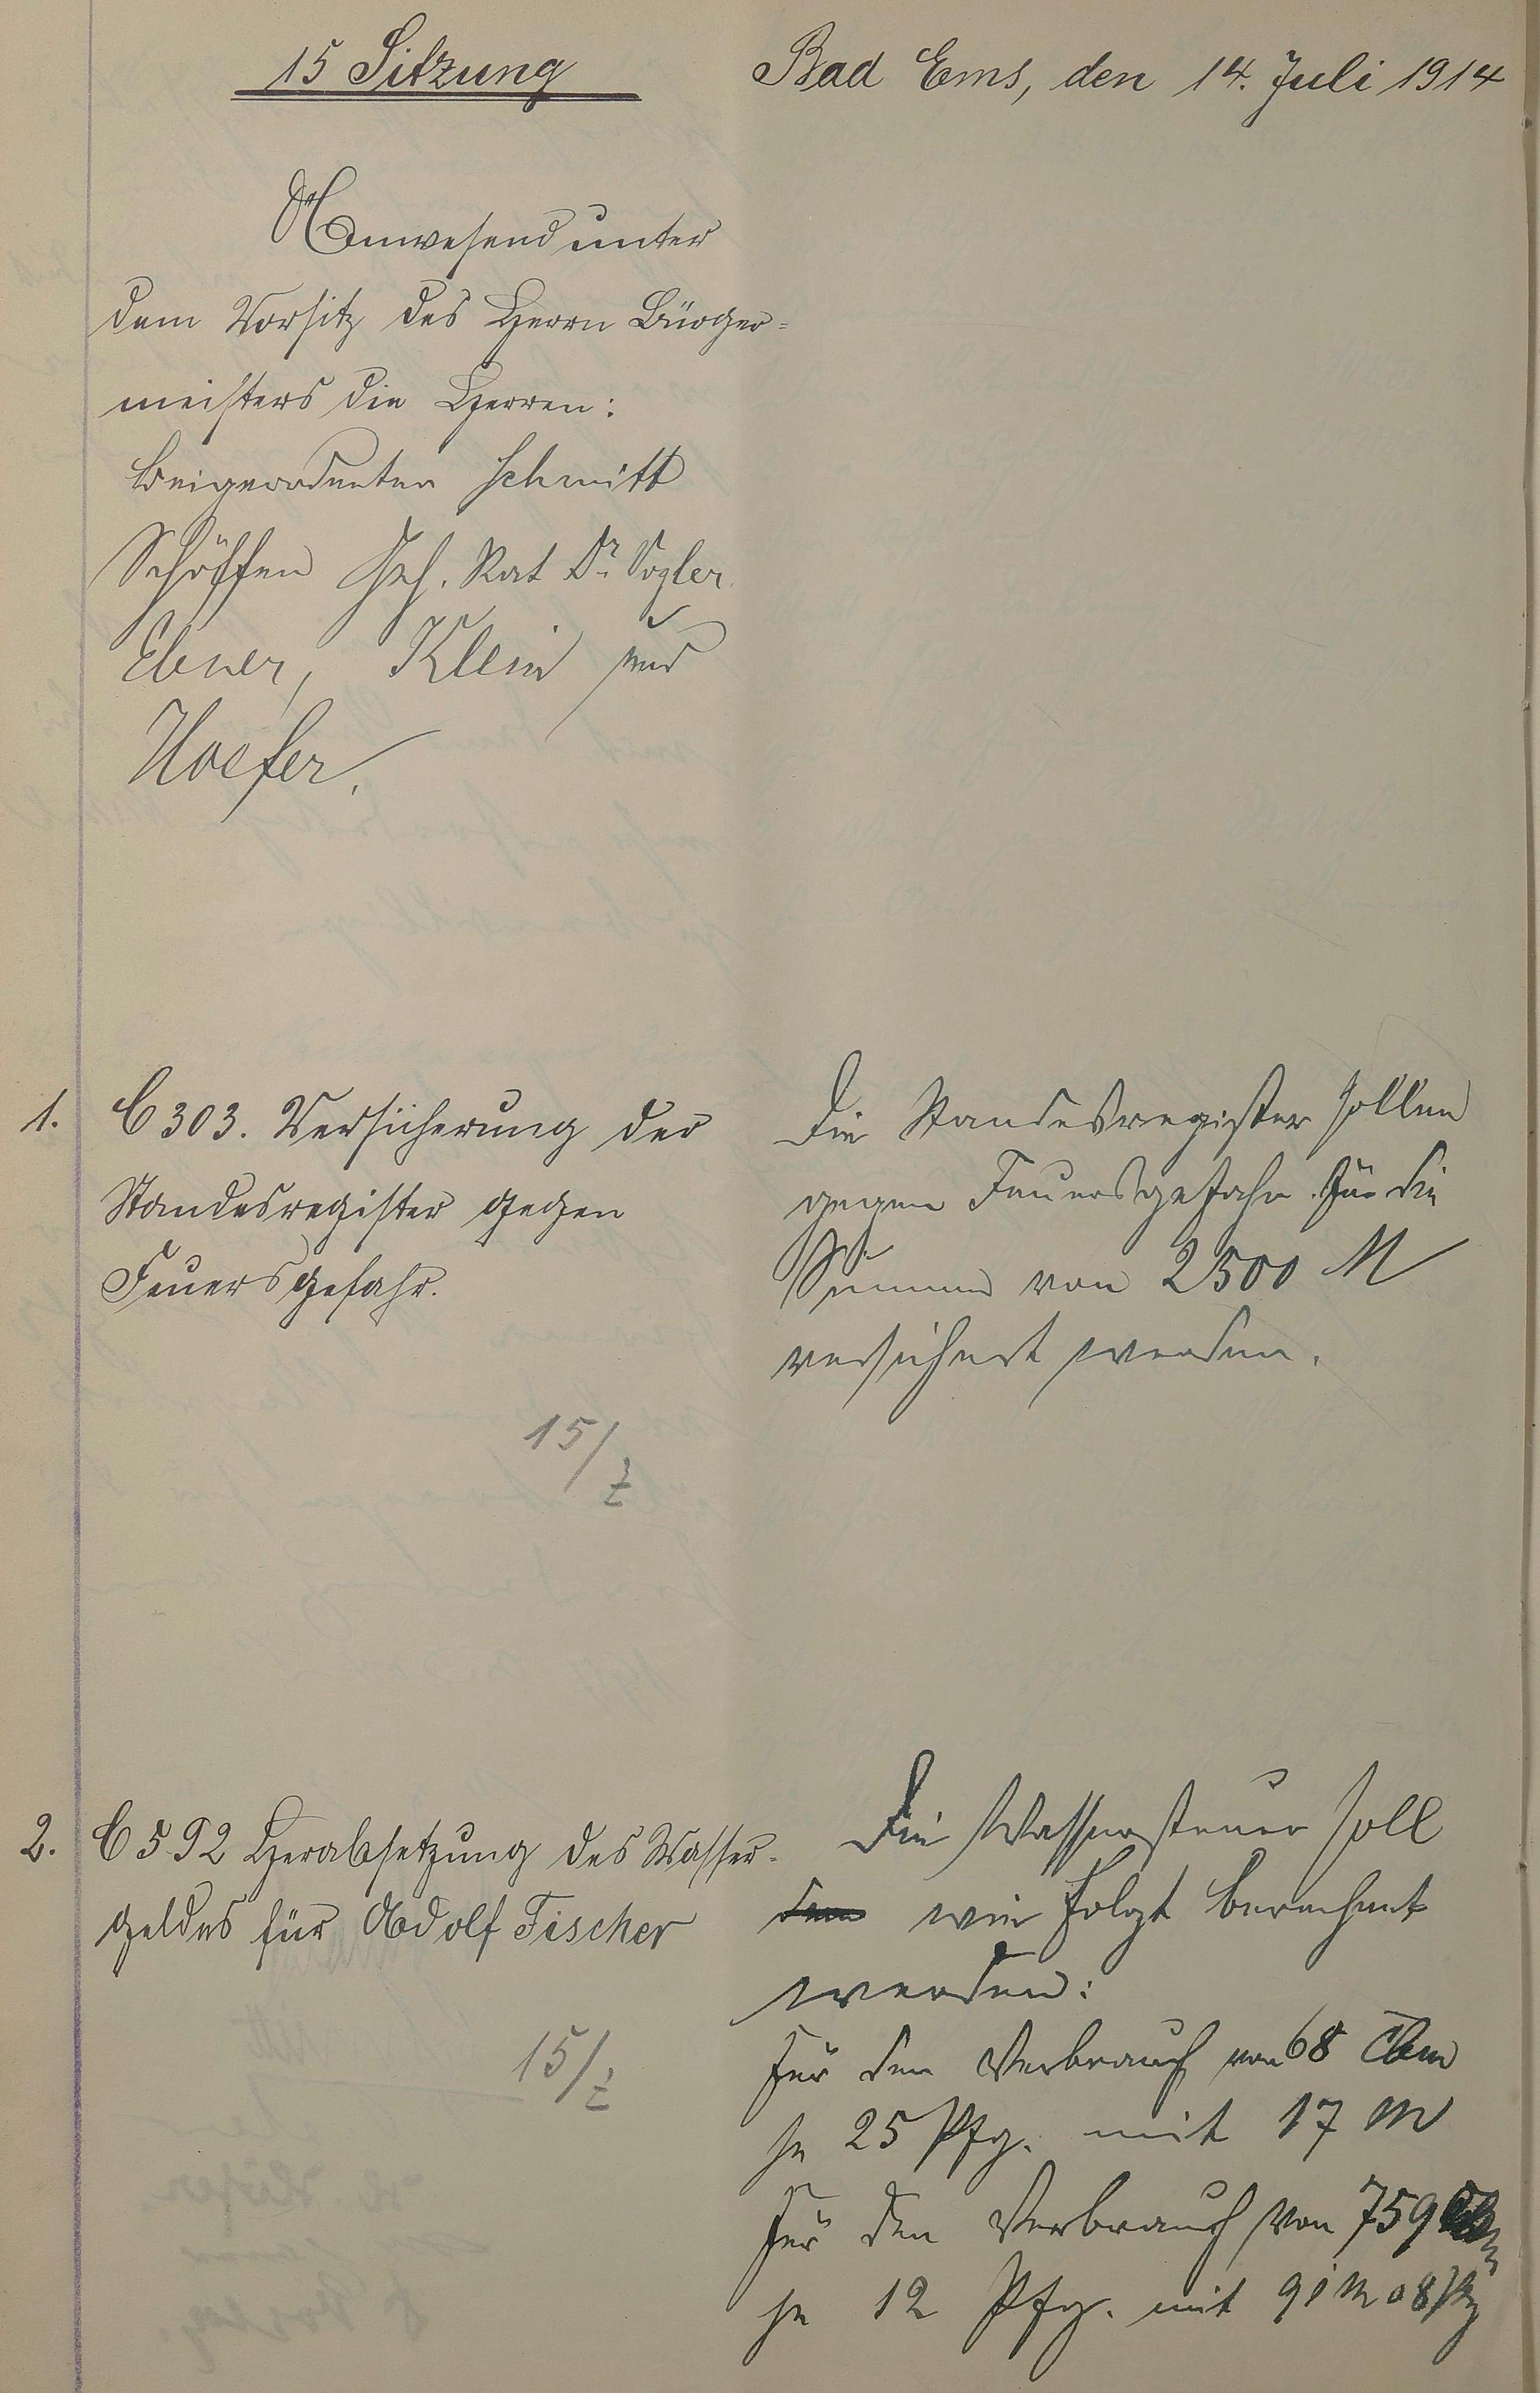 15 Sitzung
Bad Ems, den 14. Juli 1914
Anwesend unter
dem Vorsitz des Herrn Bürger-
meisters die Herren:
Beigeordneter Schmitt
Schöffen Geh. Rat Dr. Vogler
Ebner, Klein und
Hoefer.
1. C 303. Versicherung der
Standesregister gegen
Feuersgefahr.
Die Standesregister sollen
gegen Feuersgefahr für die
Summe von 2500 M
versichert werden.
15/7
2. C 592 Herabsetzung des Wasser-
geldes für Adolf Fischer
15/7
Die Wassersteuer soll
wie folgt berechnet
werden:
Für den Verbrauch von 68 Cbm
je 25 Pfg. mit 17 M
Für den Verbrauch von 759 Cbm
je 12 Pfg. mit 91 M 08 Pfg